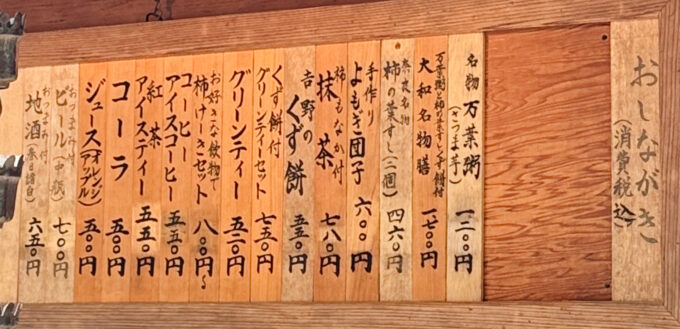 おしながき
(消費税込)
名物 万葉粥
(さつま芋)
一二〇〇円
万葉粥と柿の葉すしくず餅付
大和名物膳 一七〇〇円
奈良名物
柿の葉すし(二個) 四六〇円
手作り
よもぎ団子 六〇〇円
柿もなか付
抹茶 七八〇円
吉野の
くず餅 五五〇円
くず餅付
グリーンティーセット 七五〇円
グリーンティー 五二〇円
お好きな飲物で
柿けーきセット 八〇〇円〜
コーヒー
アイスコーヒー 五五〇円
紅茶
アイスティー 五五〇円
コーラ 五〇〇円
ジュース(オレンジ
アップル) 五〇〇円
おつまみ付
ビール(中瓶) 七〇〇円
おつまみ付
地酒 六五〇円